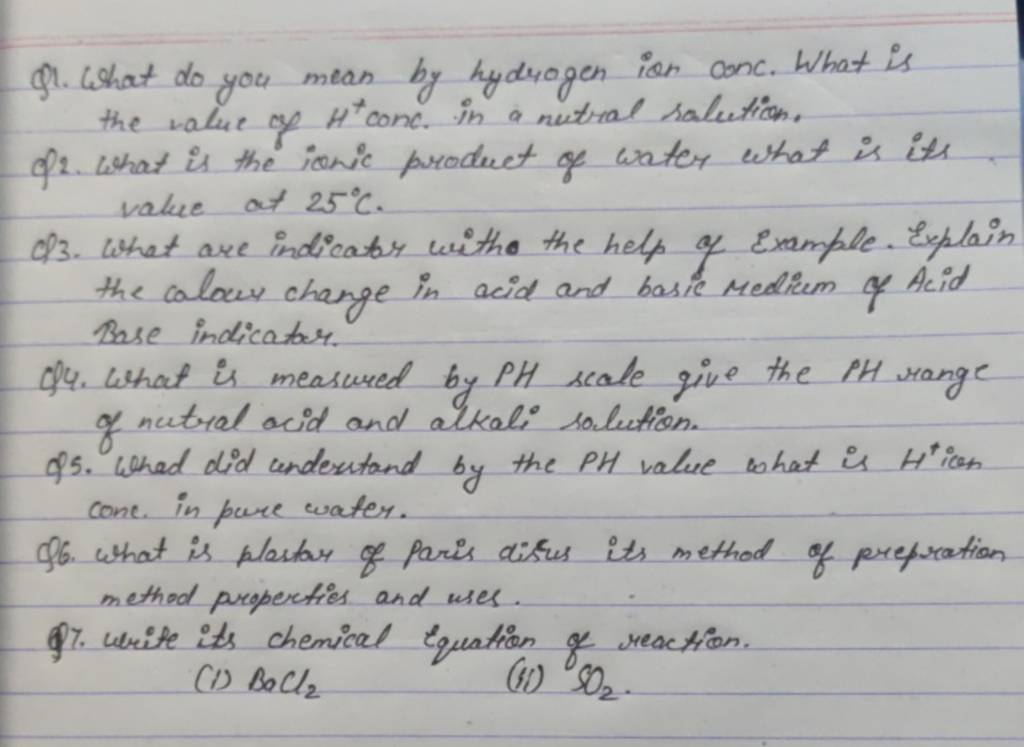 Q1. What do you mean by hydrogen ion conc. What is
the value of H⁺ conc. in a nutral solution.
Q2. What is the ionic product of water what is its
value at 25°C.
Q3. What are indicator with the help of Example. Explain
the colour change in acid and basic Medium of Acid
Base indicator.
Q4. What is measured by PH scale give the PH range
of nutral acid and alkali solution.
Q5. Whad did understand by the PH value what is H⁺ ion
conc. in pure water.
Q6. What is plastar of Paris disus its method of prepration
method properties and uses.
Q7. Write its chemical Equation of reaction.
(I) BaCl₂ (II) SO₂.